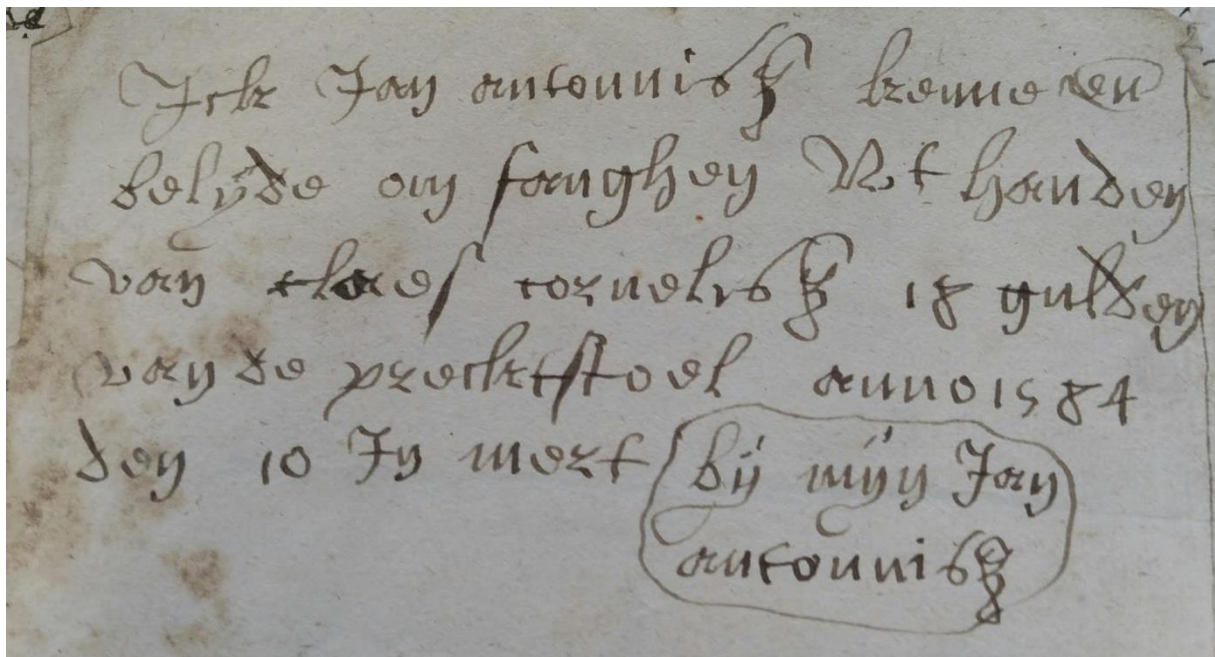 Ick Jan antonnisz kenne en
belyde ontfanghen Wt handen
van claes cornelisz 18 gulden
van de preckstoel anno 1584
den 10 In mert bij mijn Jan
antonnisz